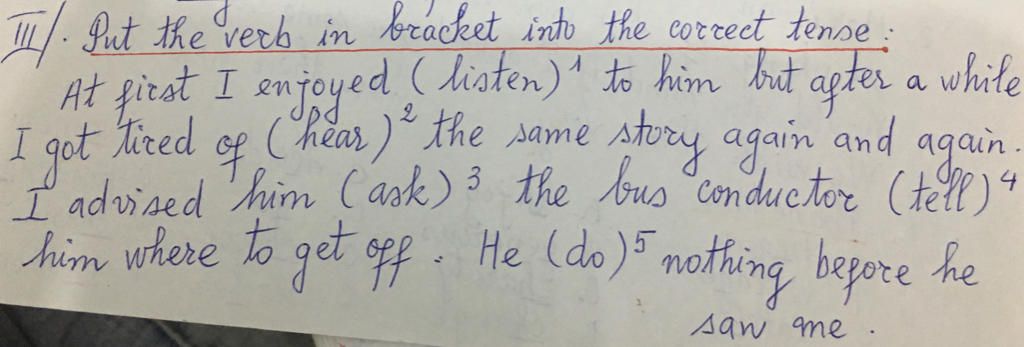 III/. Put the verb in bracket into the correct tense :
At first I enjoyed (listen)¹ to him but after a while
I got tired of (hear)² the same story again and again.
I advised him (ask)³ the bus conductor (tell)⁴
him where to get off. He (do)⁵ nothing before he
saw me.